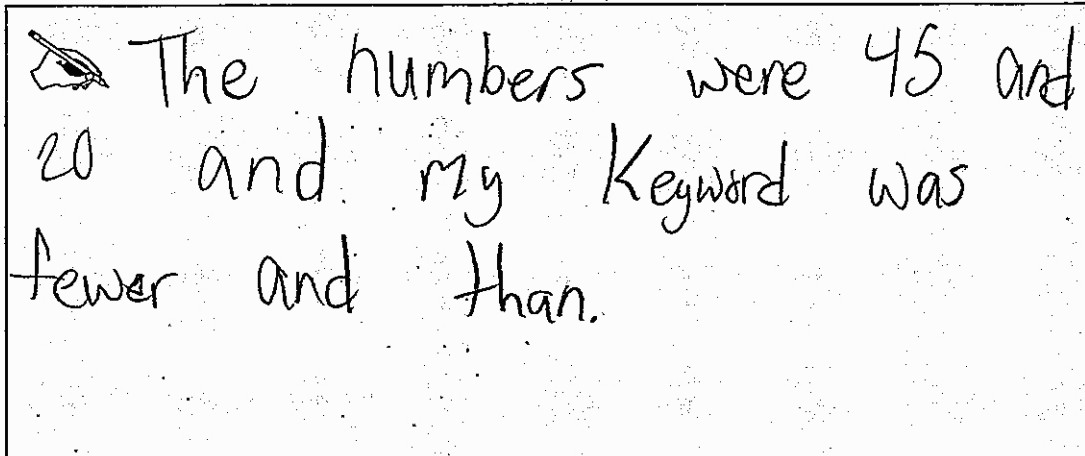 The numbers were 45 and
20 and my Keyword was
fewer and than.